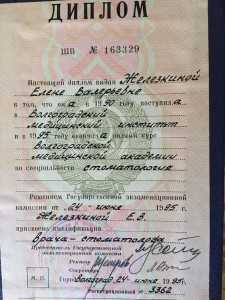 ДИПЛОМ
ШВ № 163329
Настоящий диплом выдан Железкиной
Елене Валерьевне
в том, что она в 1990 году поступила
в Волгоградский
медицинский институт
и в 1995 году окончила полный курс
Волгоградской
медицинской академии
по специальности стоматология
Решением Государственной экзаменационной
комиссии от 24 июня 1995 г.
Железкиной Е.В.
присвоена квалификация
врача-стоматолога
Председатель Государственной
экзаменационной комиссии
Ректор
Секретарь
М.П. Город Волгоград 24 июня 1995 г.
Регистрационный № 3362